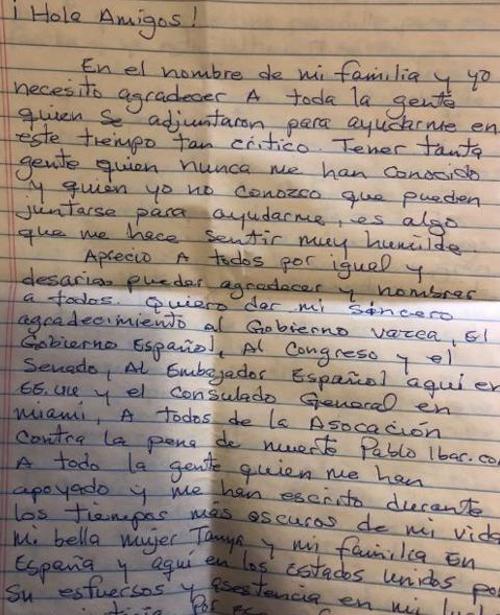 ¡Hola Amigos!
En el nombre de mi familia y yo
necesito agradecer A toda la gente
quien se adjuntaron para ayudarme en
este tiempo tan crítico. Tener tanta
gente quien nunca me han conocido
y quien yo no conozco que pueden
juntarse para ayudarme, es algo
que me hace sentir muy humilde.
Aprecio A todos por igual y
desaria poder agradecer y nombrar
a todos. Quiero dar mi sincero
agradecimiento al Gobierno vazca, El
Gobierno Español, Al Congreso y el
Senado, Al Embajador Español aqui en
EE.UU y el Consulado General en
miami, A todos de la Asocación
Contra la pena de muerte Pablo Ibar.co
A todo la gente quien me han
apoyado y me han escrito durante
los tiempos más oscuros de mi vida
Mi bella mujer Tanya y mi familia En
España y aqui en los Estados Unidos po
Su esfuersos y asestencia en mi
Por